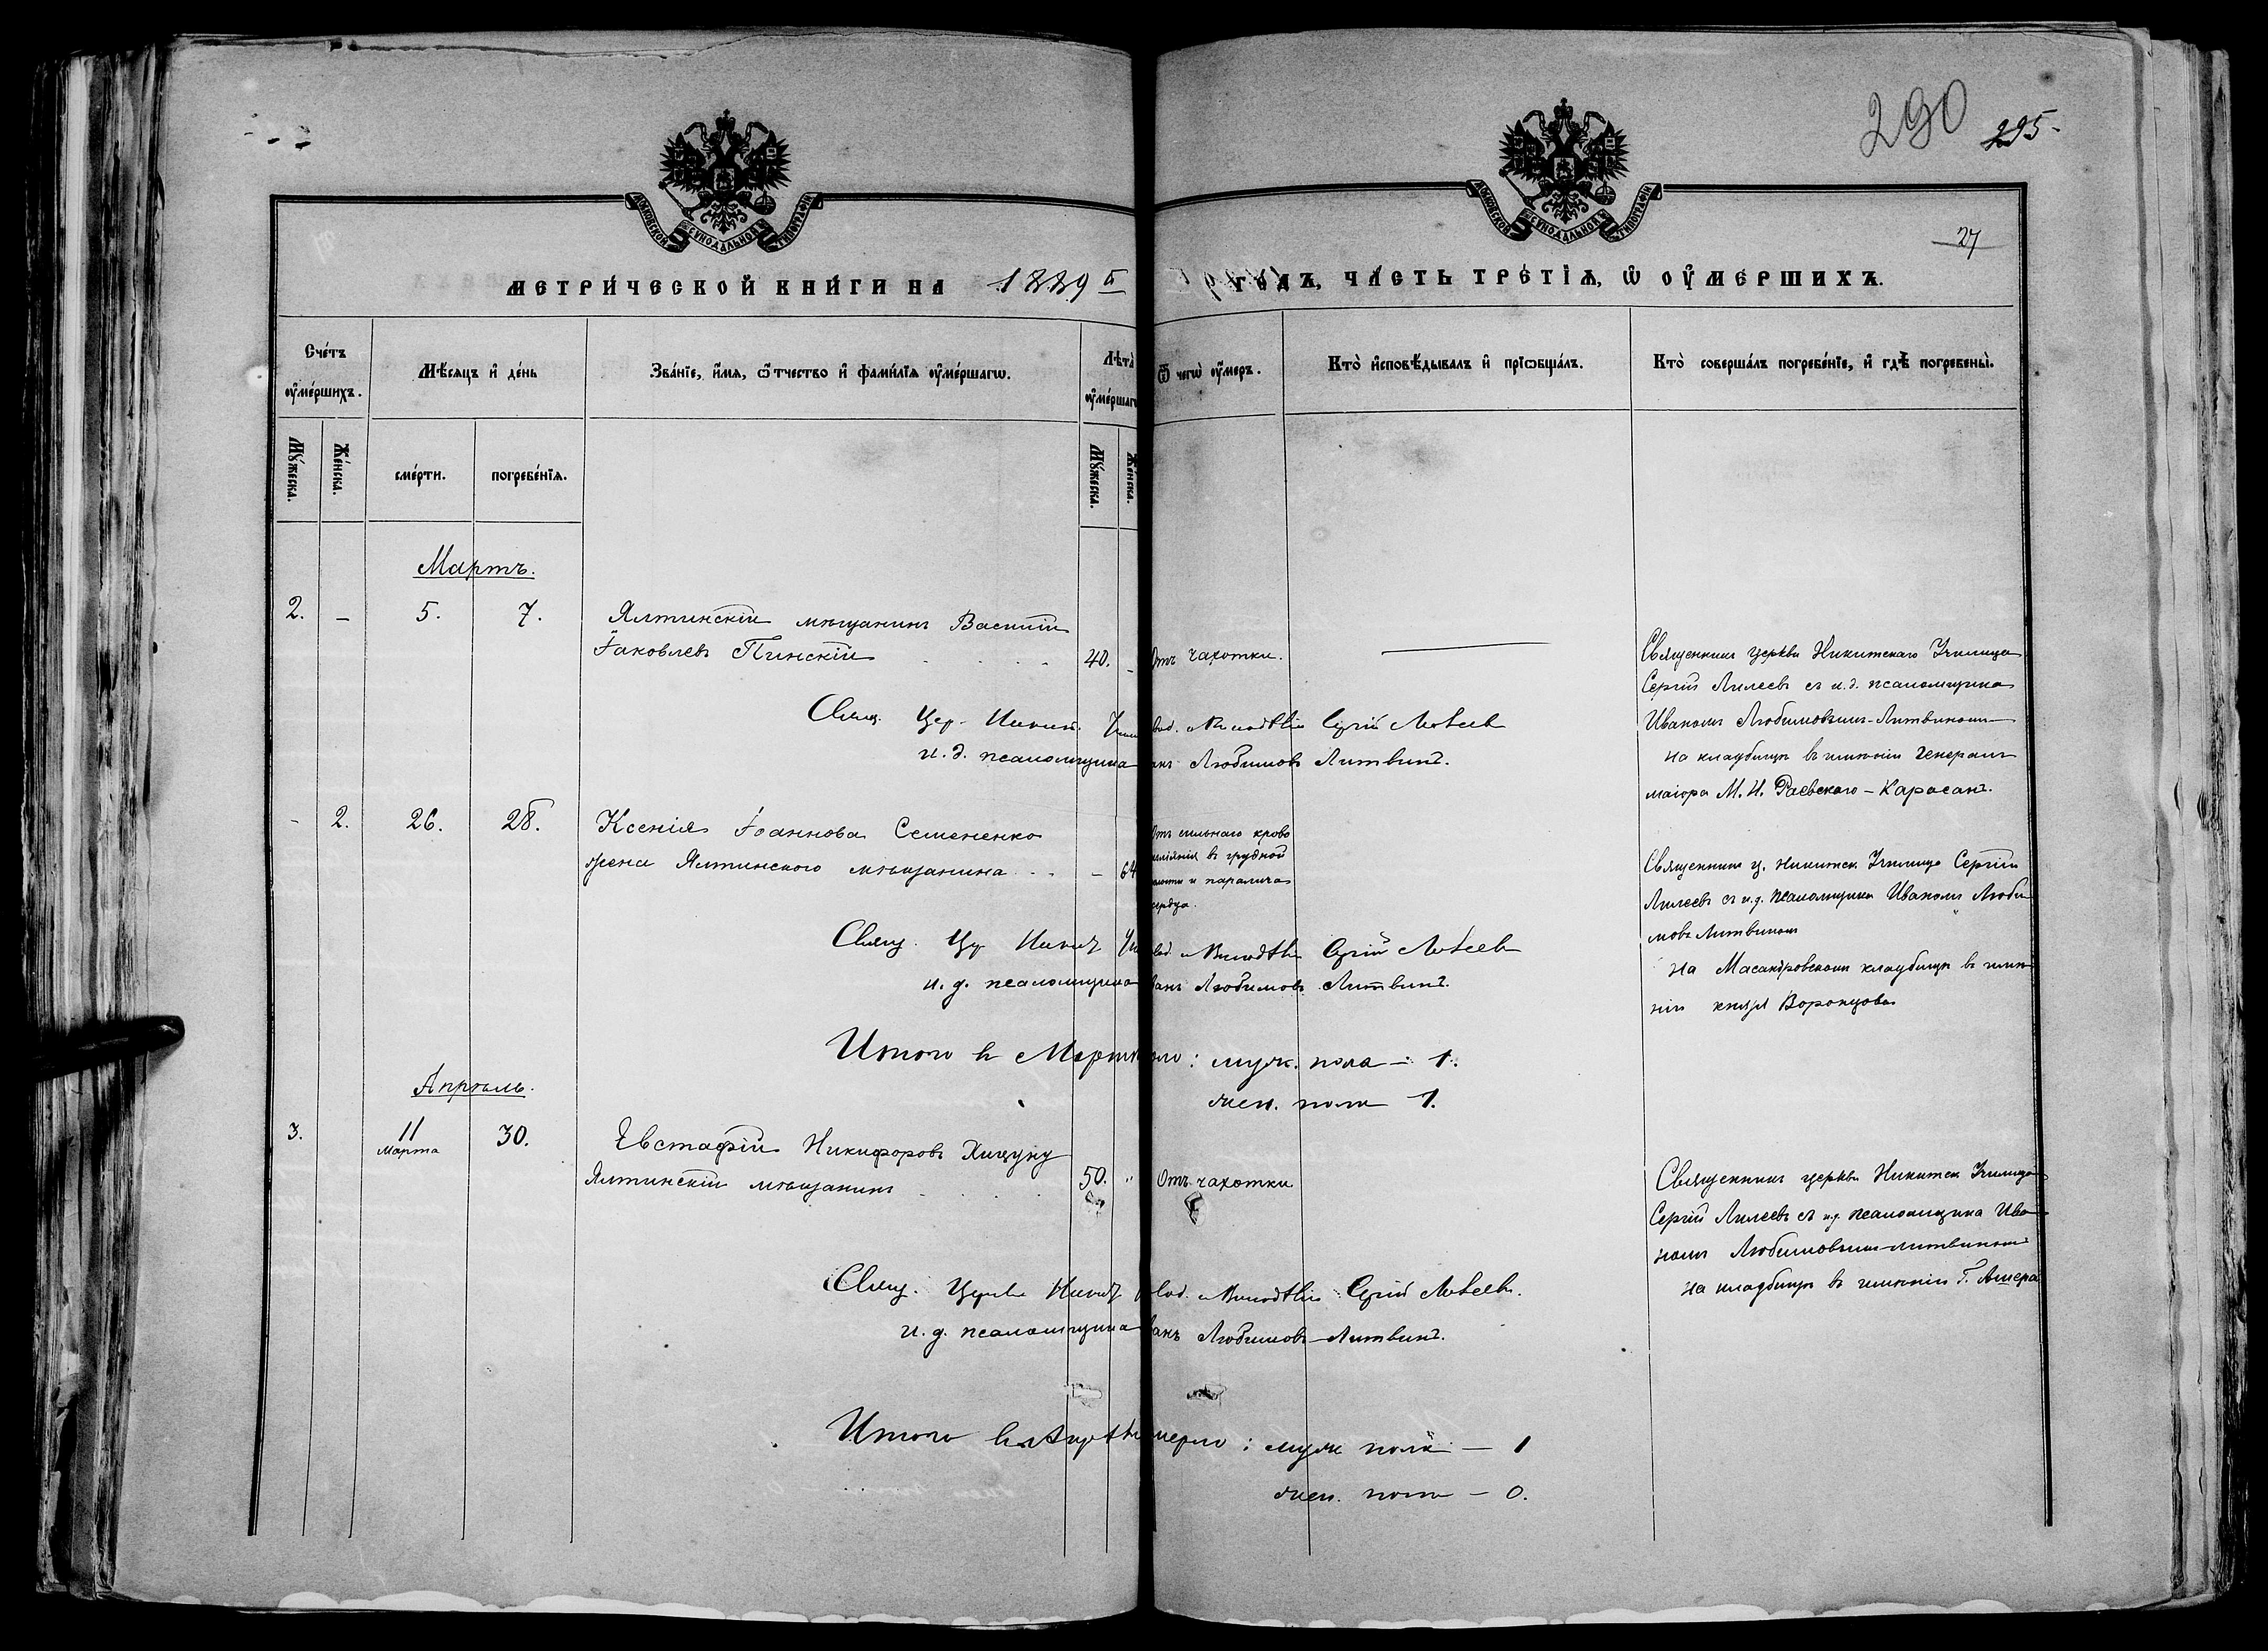 290 295
27
МОСКОВСКОЙ СѴНОДАЛЬНОЙ ТИПОГРАФІИ
МОСКОВСКОЙ СѴНОДАЛЬНОЙ ТИПОГРАФІИ
МЕТРИ́ЧЕСКОЙ КНИ́ГИ НА 1889й ГО́ДЪ, ЧА́СТЬ ТРЕ́ТІѦ, Ѡ҆ ОУ҆МЕ́РШИХЪ.
Сче́тъ оу҆ме́ршихъ.
Мѣ́сяцъ и҆ де́нь
Зва́нїе, и҆́мѧ, ѻ҆́тчество и҆ фами́лїѧ оу҆ме́ршагѡ.
Лѣта̀ оу҆ме́ршагѡ
Ѿ чегѡ̀ оу҆́меръ.
Кто̀ и҆сповѣ́дывалъ и҆ прїѡбща́лъ.
Кто̀ соверша́лъ погребе́нїе, и҆ гдѣ̀ погребены̀.
Му́жеска.
Же́нска.
сме́рти.
погребе́нїѧ.
Му́жеска.
Же́нска.
Мартъ.
2. – 5. 7. Ялтинскій мѣщанинъ Василій
Іаковлевъ Пинскій 40. – Отъ чахотки.
Священникъ церкви Никитскаго Училища
Сергій Лилеевъ съ и.д. псаломщика
Иваномъ Любимовымъ-Литвиномъ
на кладбищѣ въ имѣніи Генералъ
маіора М. Н. Раевскаго – Карасанъ.
Свящ. Цер. Никит. Сергій Лилеевъ
и. д. псаломщика Любимовъ Литвинъ.
- 2. 26. 28. Ксенія Іоаннова Семененко
жена Ялтинскаго мѣщанина – 64
Отъ сильнаго крово
изліянія въ грудной
полости и паралича
сердца.
Священникъ ц. Никитск Училища Сергій
Лилеевъ съ и.д. псаломщика Иваномъ Люби
мовъ Литвиномъ
на Масандровскомъ кладбищѣ въ имѣ
ніи князя Воронцова
Свящ. Цер Никит Сергій Лилеевъ
и. д. псаломщика Любимовъ Литвинъ.
Итого въ Мартѣ : муж. пола – 1.
жен. пола 1.
Апрѣль.
3. 11 Марта 30. Евстафій Никифоровъ Хищуку
Ялтинскій мѣщанинъ 50. " Отъ чахотки
Священникъ церкви Никитск Училища
Сергій Лилеевъ съ и.д. псаломщика Ива
номъ Любимовымъ-Литвиномъ
на кладбищѣ въ имѣніи Г. Ашера
Свящ. Церкви Никит Сергій Лилеевъ.
и. д. псаломщика Любимовъ-Литвинъ.
Итого въ Апрѣлѣ умерло : муж пола – 1
жен. пола – 0.